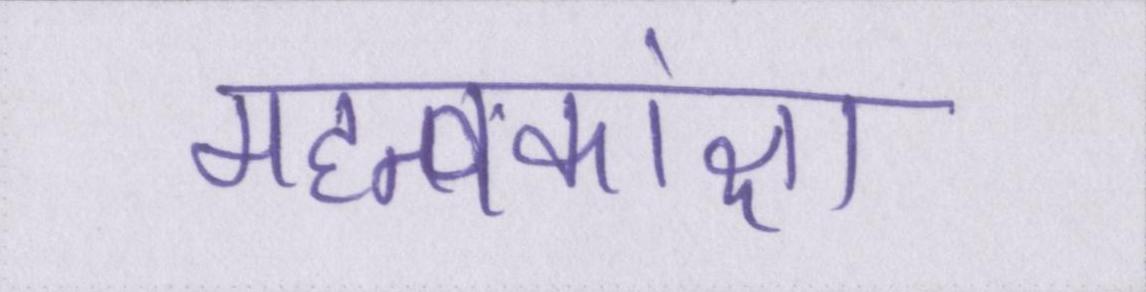 महत्वकांक्षा